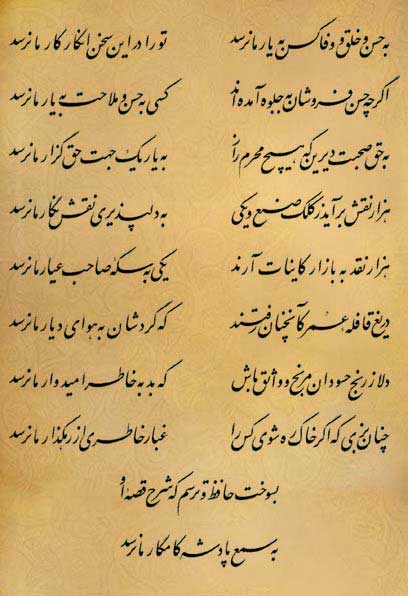 به حسن و خلق و وفا کس به یار ما نرسد تو را در این سخن انکار کار ما نرسد
اگرچه حسن فروشان به جلوه آمده‌اند کسی به حسن و ملاحت به یار ما نرسد
به حق صحبت دیرین که هیچ محرم راز به یار یک جهت حق گزار ما نرسد
هزار نقش برآید ز کلک صنع و یکی به دلپذیری نقش نگار ما نرسد
هزار نقد به بازار کاینات آرند یکی به سکهٔ صاحب عیار ما نرسد
دریغ قافله عمر کآنچنان رفتند که گردشان به هوای دیار ما نرسد
دلا ز رنج حسودان مرنج و واثق باش که بد به خاطر امیدوار ما نرسد
چنان بزی که اگر خاک ره شوی کس را غبار خاطری از رهگذار ما نرسد
بسوخت حافظ و ترسم که شرح قصهٔ او
به سمع پادشه کامگار ما نرسد